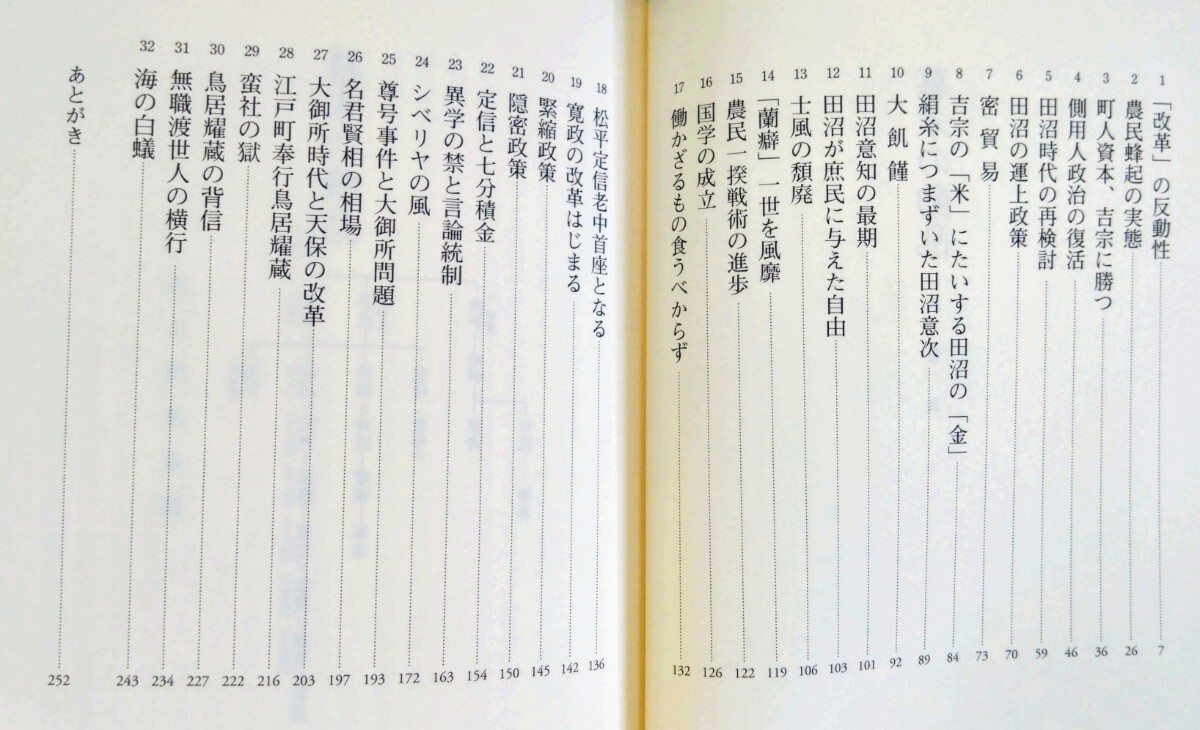 1 「改革」の反動性 7
2 農民蜂起の実態 26
3 町人資本、吉宗に勝つ 36
4 側用人政治の復活 46
5 田沼時代の再検討 59
6 田沼の運上政策 70
7 密貿易 73
8 吉宗の「米」にたいする田沼の「金」 84
9 絹糸につまずいた田沼意次 89
10 大飢饉 92
11 田沼意知の最期 101
12 田沼が庶民に与えた自由 103
13 士風の頽廃 106
14 「蘭癖」一世を風靡 119
15 農民一揆戦術の進歩 122
16 国学の成立 126
17 働かざるもの食うべからず 132
18 松平定信老中首座となる 136
19 寛政の改革はじまる 142
20 緊縮政策 145
21 隠密政策 150
22 定信と七分積金 154
23 異学の禁と言論統制 163
24 シベリヤの風 172
25 尊号事件と大御所問題 193
26 名君賢相の相場 197
27 大御所時代と天保の改革 203
28 江戸町奉行鳥居耀蔵 216
29 蛮社の獄 222
30 鳥居耀蔵の背信 227
31 無職渡世人の横行 234
32 海の白蟻 243
あとがき 252